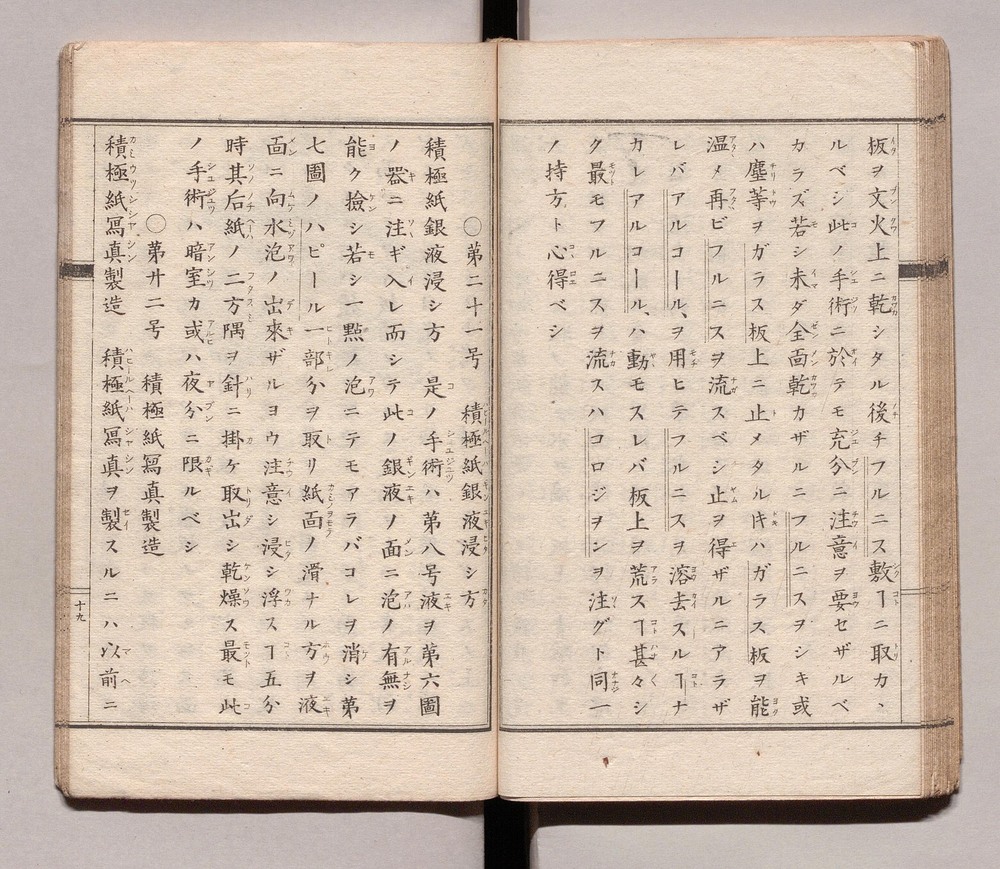 板ヲ文火上ニ乾シタル後チフルニス敷ヿニ取カヽ
ルベシ此ノ手術ニ於テモ充分ニ注意ヲ要セザルベ
カラズ若シ未ダ全面乾カザルニフルニスヲシキ或
ハ塵等ヲガラス板上ニ止メタル𪜈ハガラス板ヲ能
温メ再ビフルニスヲ流スベシ止ヲ得ザルニアラザ
レバアルコールヲ用ヒテフルニスヲ溶去スルヿナ
カレアルコールハ動モスレバ板上ヲ荒スヿ甚々シ
ク最モフルニスヲ流スハコロジヲンヲ注グト同一
ノ持方ト心得ベシ
〇第二十一号　積極紙銀液浸シ方
積極紙銀液浸シ方　是ノ手術ハ第八号液ヲ第六圖
ノ器ニ注ギ入レ而シテ此ノ銀液ノ面ニ泡ノ有無ヲ
能ク撿シ若シ一點ノ泡ニテモアラバコレヲ消シ第
七圖ノハピール一部分ヲ取リ紙面ノ滑ナル方ヲ液
面ニ向水泡ノ出來ザルヨウ注意シ浸シ浮スヿ五分
時其后紙ノ二方隅ヲ針ニ掛ケ取出シ乾燥ス最モ此
ノ手術ハ暗室カ或ハ夜分ニ限ルベシ
〇第廿二号　積極紙寫真製造
積極紙寫真製造　積極紙寫真ヲ製スルニハ以前ニ
十九